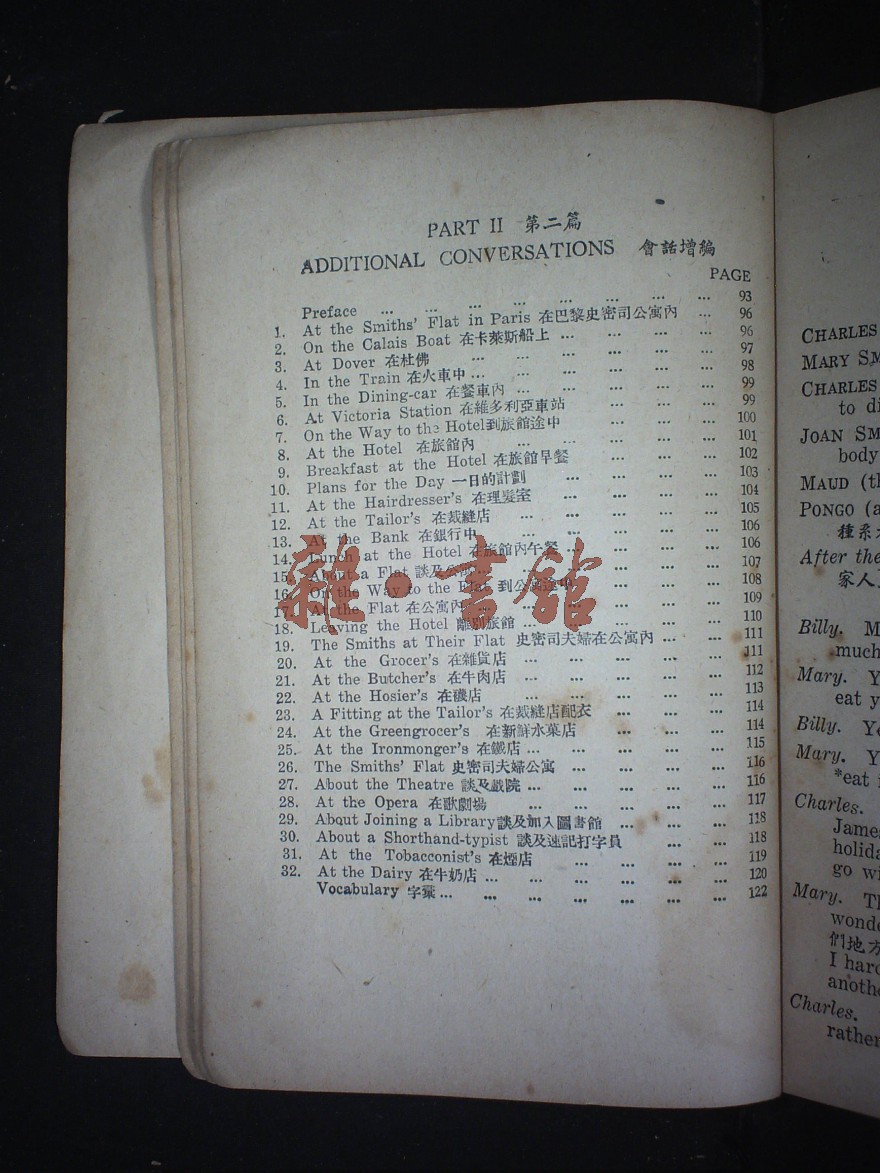 PART II 第二篇
ADDITIONAL CONVERSATIONS 會話增編
PAGE
Preface ... ... ... ... ... ... ... ... 93
1. At the Smiths' Flat in Paris 在巴黎史密司公寓內 ... 96
2. On the Calais Boat 在卡萊斯船上 ... ... ... ... 96
3. At Dover 在杜佛 ... ... ... ... ... ... 97
4. In the Train 在火車中 ... ... ... ... ... ... 98
5. In the Dining-car 在餐車內 ... ... ... ... ... 99
6. At Victoria Station 在維多利亞車站 ... ... ... 99
7. On the Way to the Hotel 到旅館途中 ... ... ... 100
8. At the Hotel 在旅館內 ... ... ... ... ... 101
9. Breakfast at the Hotel 在旅館早餐 ... ... ... 102
10. Plans for the Day 一日的計劃 ... ... ... ... 103
11. At the Hairdresser's 在理髮室 ... ... ... ... 104
12. At the Tailor's 在裁縫店 ... ... ... ... ... 105
13. At the Bank 在銀行中 ... ... ... ... ... 106
14. Lunch at the Hotel 在旅館內午餐 ... ... ... ... 106
15. About a Flat 談及公寓 ... ... ... ... ... 107
16. On the Way to the Flat 到公寓途中 ... ... ... 108
17. At the Flat 在公寓內 ... ... ... ... ... ... 109
18. Leaving the Hotel 離別旅館 ... ... ... ... ... 110
19. The Smiths at Their Flat 史密司夫婦在公寓內 ... ... ... 111
20. At the Grocer's 在雜貨店 ... ... ... ... ... 111
21. At the Butcher's 在牛肉店 ... ... ... ... ... 112
22. At the Hosier's 在襪店 ... ... ... ... ... ... 113
23. A Fitting at the Tailor's 在裁縫店配衣 ... ... ... 114
24. At the Greengrocer's 在新鮮水菓店 ... ... ... 114
25. At the Ironmonger's 在鐵店 ... ... ... ... ... 115
26. The Smiths' Flat 史密司夫婦公寓 ... ... ... ... 116
27. About the Theatre 談及戲院 ... ... ... ... ... 116
28. At the Opera 在歌劇場 ... ... ... ... ... 117
29. About Joining a Library 談及加入圖書館 ... ... ... 118
30. About a Shorthand-typist 談及速記打字員 ... ... 118
31. At the Tobacconist's 在煙店 ... ... ... ... 119
32. At the Dairy 在牛奶店 ... ... ... ... ... ... 120
Vocabulary 字彙 ... ... ... ... ... ... ... 122
雜·書館
CHARLES
MARY SM
CHARLES
to di
JOAN SM
body
MAUD (th
PONGO (a
種系
After the
家人
Billy. M
much
Mary. Y
eat y
Billy. Ye
Mary. Y
*eat
Charles.
James
holida
go wi
Mary. Th
wonde
們地方
I hard
anothe
Charles.
rather